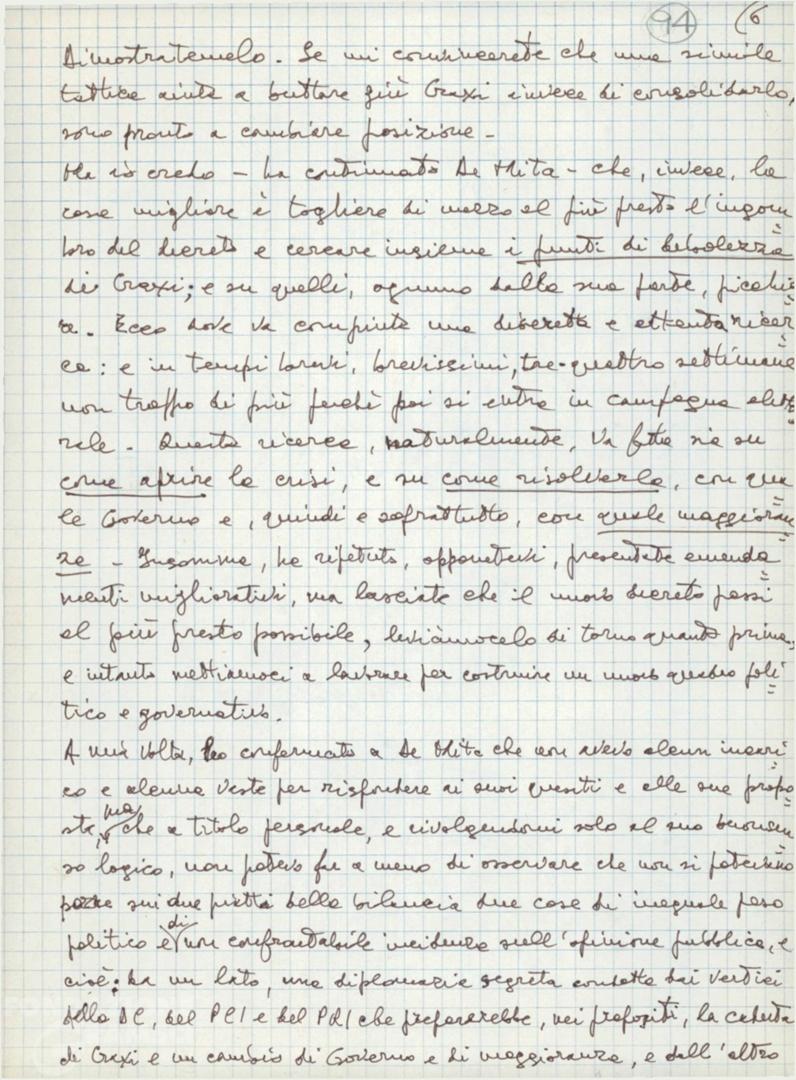 94 (6
Dimostratemelo. Se mi convincerete che una simile
tattica aiuta a buttare giù Craxi invece di consolidarlo,
sono pronto a cambiare posizione -
Ma io credo - ha continuato De Mita - che, invece, la
cosa migliore è togliere di mezzo al più presto l'ingom
bro del decreto e cercare insieme i punti di debolezza
di Craxi; e su quelli, ognuno dalla sua parte, picchia
re. Ecco dove va compiuta una discreta e attenta ricer
ca: e in tempi brevi, brevissimi, tre-quattro settimane
non troppo di più perché poi si entra in campagna eletto
rale - Questa ricerca, naturalmente, va fatta sia su
come aprire la crisi, e su come risolverla, con qua
le Governo e, quindi e soprattutto, con quale maggioran
za - Insomma, ha ripetuto, opponetevi, presentate emenda
menti migliorativi, ma lasciate che il nuovo decreto passi
al più presto possibile, leviàmocelo di torno quanto prima,
e intanto mettiamoci a lavorare per costruire un nuovo quadro poli
tico e governativo.
A mia volta, ho confermato a De Mita che non avevo alcun incari
co e alcuna veste per rispondere ai suoi quesiti e alle sue propo
ste, ma che a titolo personale, e rivolgendomi solo al suo buonsen
so logico, non potevo fare a meno di osservare che non si potevano
porre sui due piatti della bilancia due cose di ineguale peso
politico e di non confrontabile incidenza sull'opinione pubblica, e
cioè: da un lato, una diplomazia segreta condotta dai vertici
della DC, del PCI e del PRI che preparerebbe, nei propositi, la caduta
di Craxi e un cambio di Governo e di maggioranza, e dall'altro